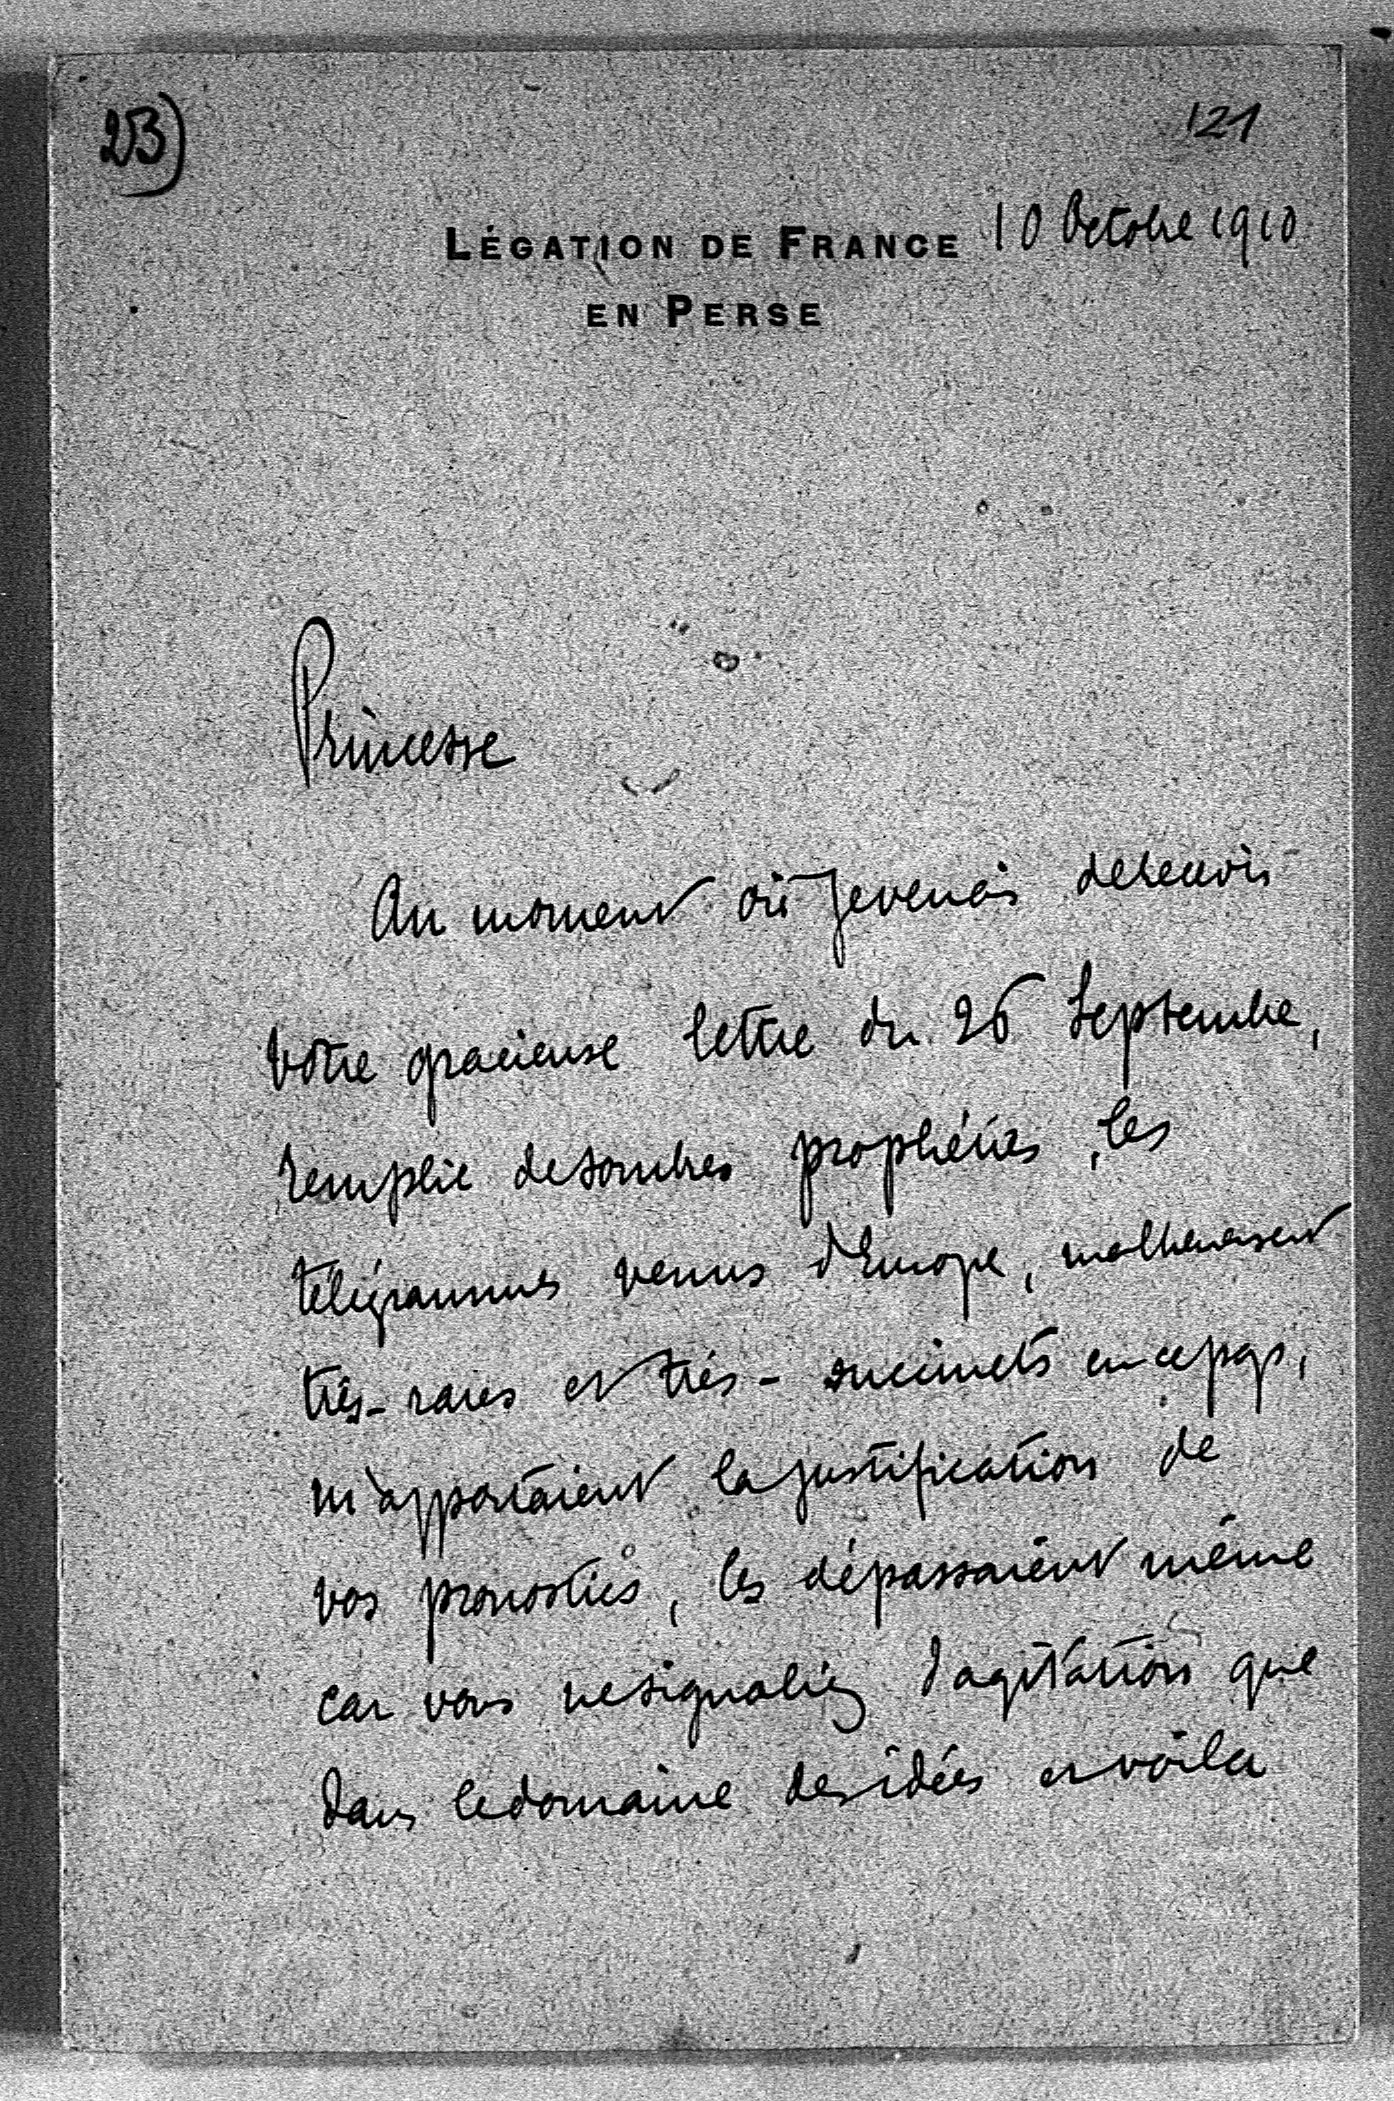 23)
121
LÉGATION DE FRANCE 10 Octobre 1910
EN PERSE
Princesse
Au moment où je venais de recevoir
votre gracieuse lettre du 26 Septembre,
remplie de sombres prophéties, les
télégrammes venus d'Europe, malheureusent
très-rares et très-succincts en ce pays,
m'apportaient la justification de
vos pronostics, les dépassaient même
car vous ne signaliez d'agitation que
dans le domaine des idées et voilà